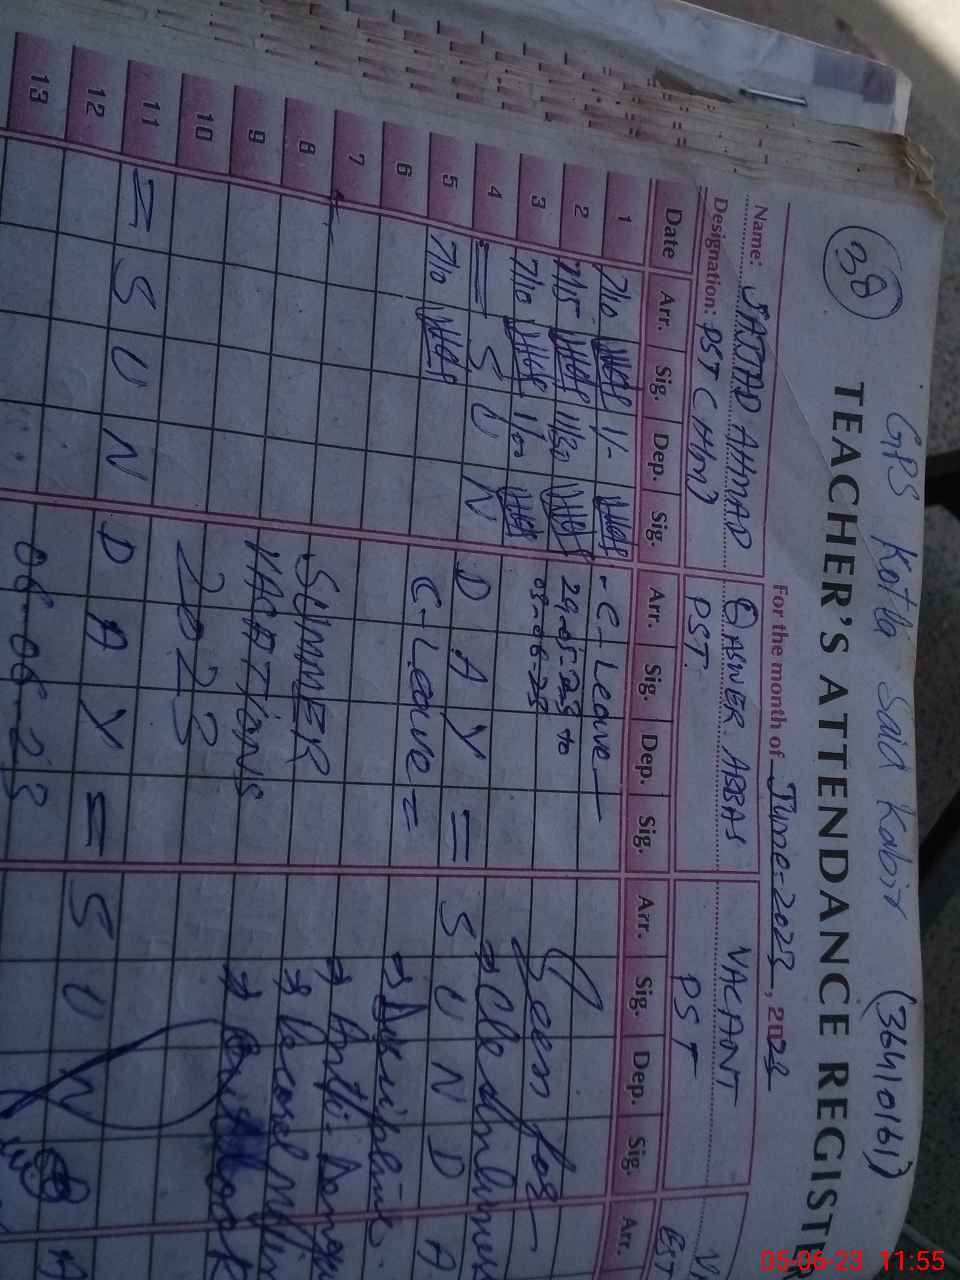 GPS Kotla Said Kabir (36410161)
38 TEACHER'S ATTENDANCE REGISTE
For the month of June-2023, 2023
Name: SAJJAD AHMAD ASWER ABBAS VACANT
Designation: PST (HM) PST. PST EST
Date Arr. Sig. Dep. Sig. Arr. Sig. Dep. Sig. Arr. Sig. Dep. Sig. Arr.
1 7/10 1/- - C - Leave -
2 7/15 11/30 29-05-23 to Seen for
3 7/10 1/00 03-06-23
4 = S U N D A Y = S U N D A
5 7/10 C - Leave =
6 Discipline.
7 Anti-
8 SUMMER
9 VACATIONS
10 2023
11 = S U N D A Y = S U N A
12
13 06-06-23
05-06-23 11:55